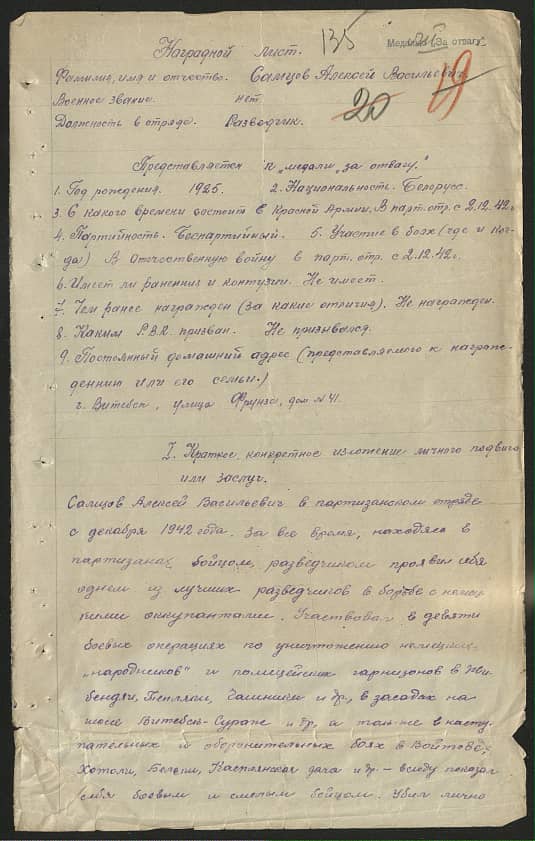 135
Медалью „За отвагу"
Наградной лист.
Фамилия, имя и отчество. Самцов Алексей Васильевич
Военное звание. нет.
20 19
Должность в отряде. Разведчик.
Представляется к „медали „за отвагу."
1. Год рождения. 1925. 2. Национальность. Белорусс.
3. С какого времени состоит в Красной Армии. В парт. отр. с 2.12.42г.
4. Партийность. Беспартийный. 5. Участие в боях (где и ког-
да) В Отечественную войну в парт. отр. с 2.12.42г.
6. Имеет ли ранения и контузии. Не имеет.
7. Чем ранее награжден (за какие отличия). Не награжден.
8. Каким Р.В.К. призван. Не призывался.
9. Постоянный домашний адрес (представляемого к награж-
дению или его семьи.)
г. Витебск, улица Фрунзе, дом № 41.
I. Краткое конкретное изложение личного подвига
или заслуг.
Самцов Алексей Васильевич в партизанском отряде
с декабря 1942 года. За все время, находясь в
партизанах бойцом, разведчиком проявил себя
одним из лучших разведчиков в борьбе с немец
кими оккупантами. Участвовал в девяти
боевых операциях по уничтожению немецких
„народников" и полицейских гарнизонов в
Тепляки, и др., в засадах на
шоссе Витебск-Сураж и др. а также в насту
пательных и оборонительных боях в Войтово,
Хотоли, дача и др. – всюду показал
себя боевым и смелым бойцом. Убил лично